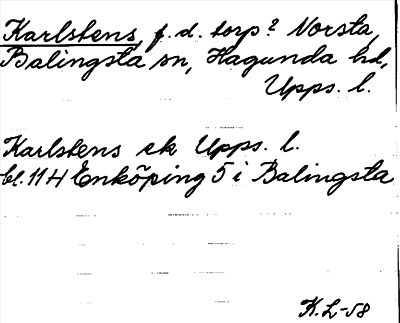 Karlstens, f. d. torp? Norsta,
Balingsta sn, Hagunda hd,
Upps. l.
Karlstens ek Upps. l.
bl. 11H Enköping 5 i Balingsta
K. L-58